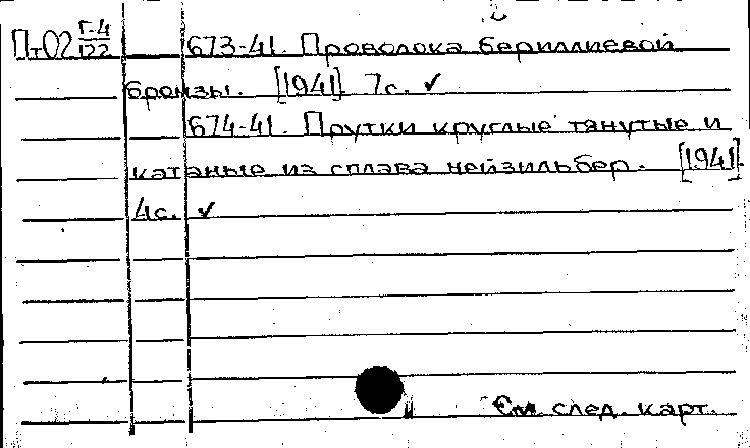 Пт02 Г-4/122 673-41. Проволока бериллиевой
бронзы. [1941]. 7с. ✓
674-41. Прутки круглые тянутые и
катаные из сплава нейзильбер. [1941].
4с. ✓
См. след. карт.